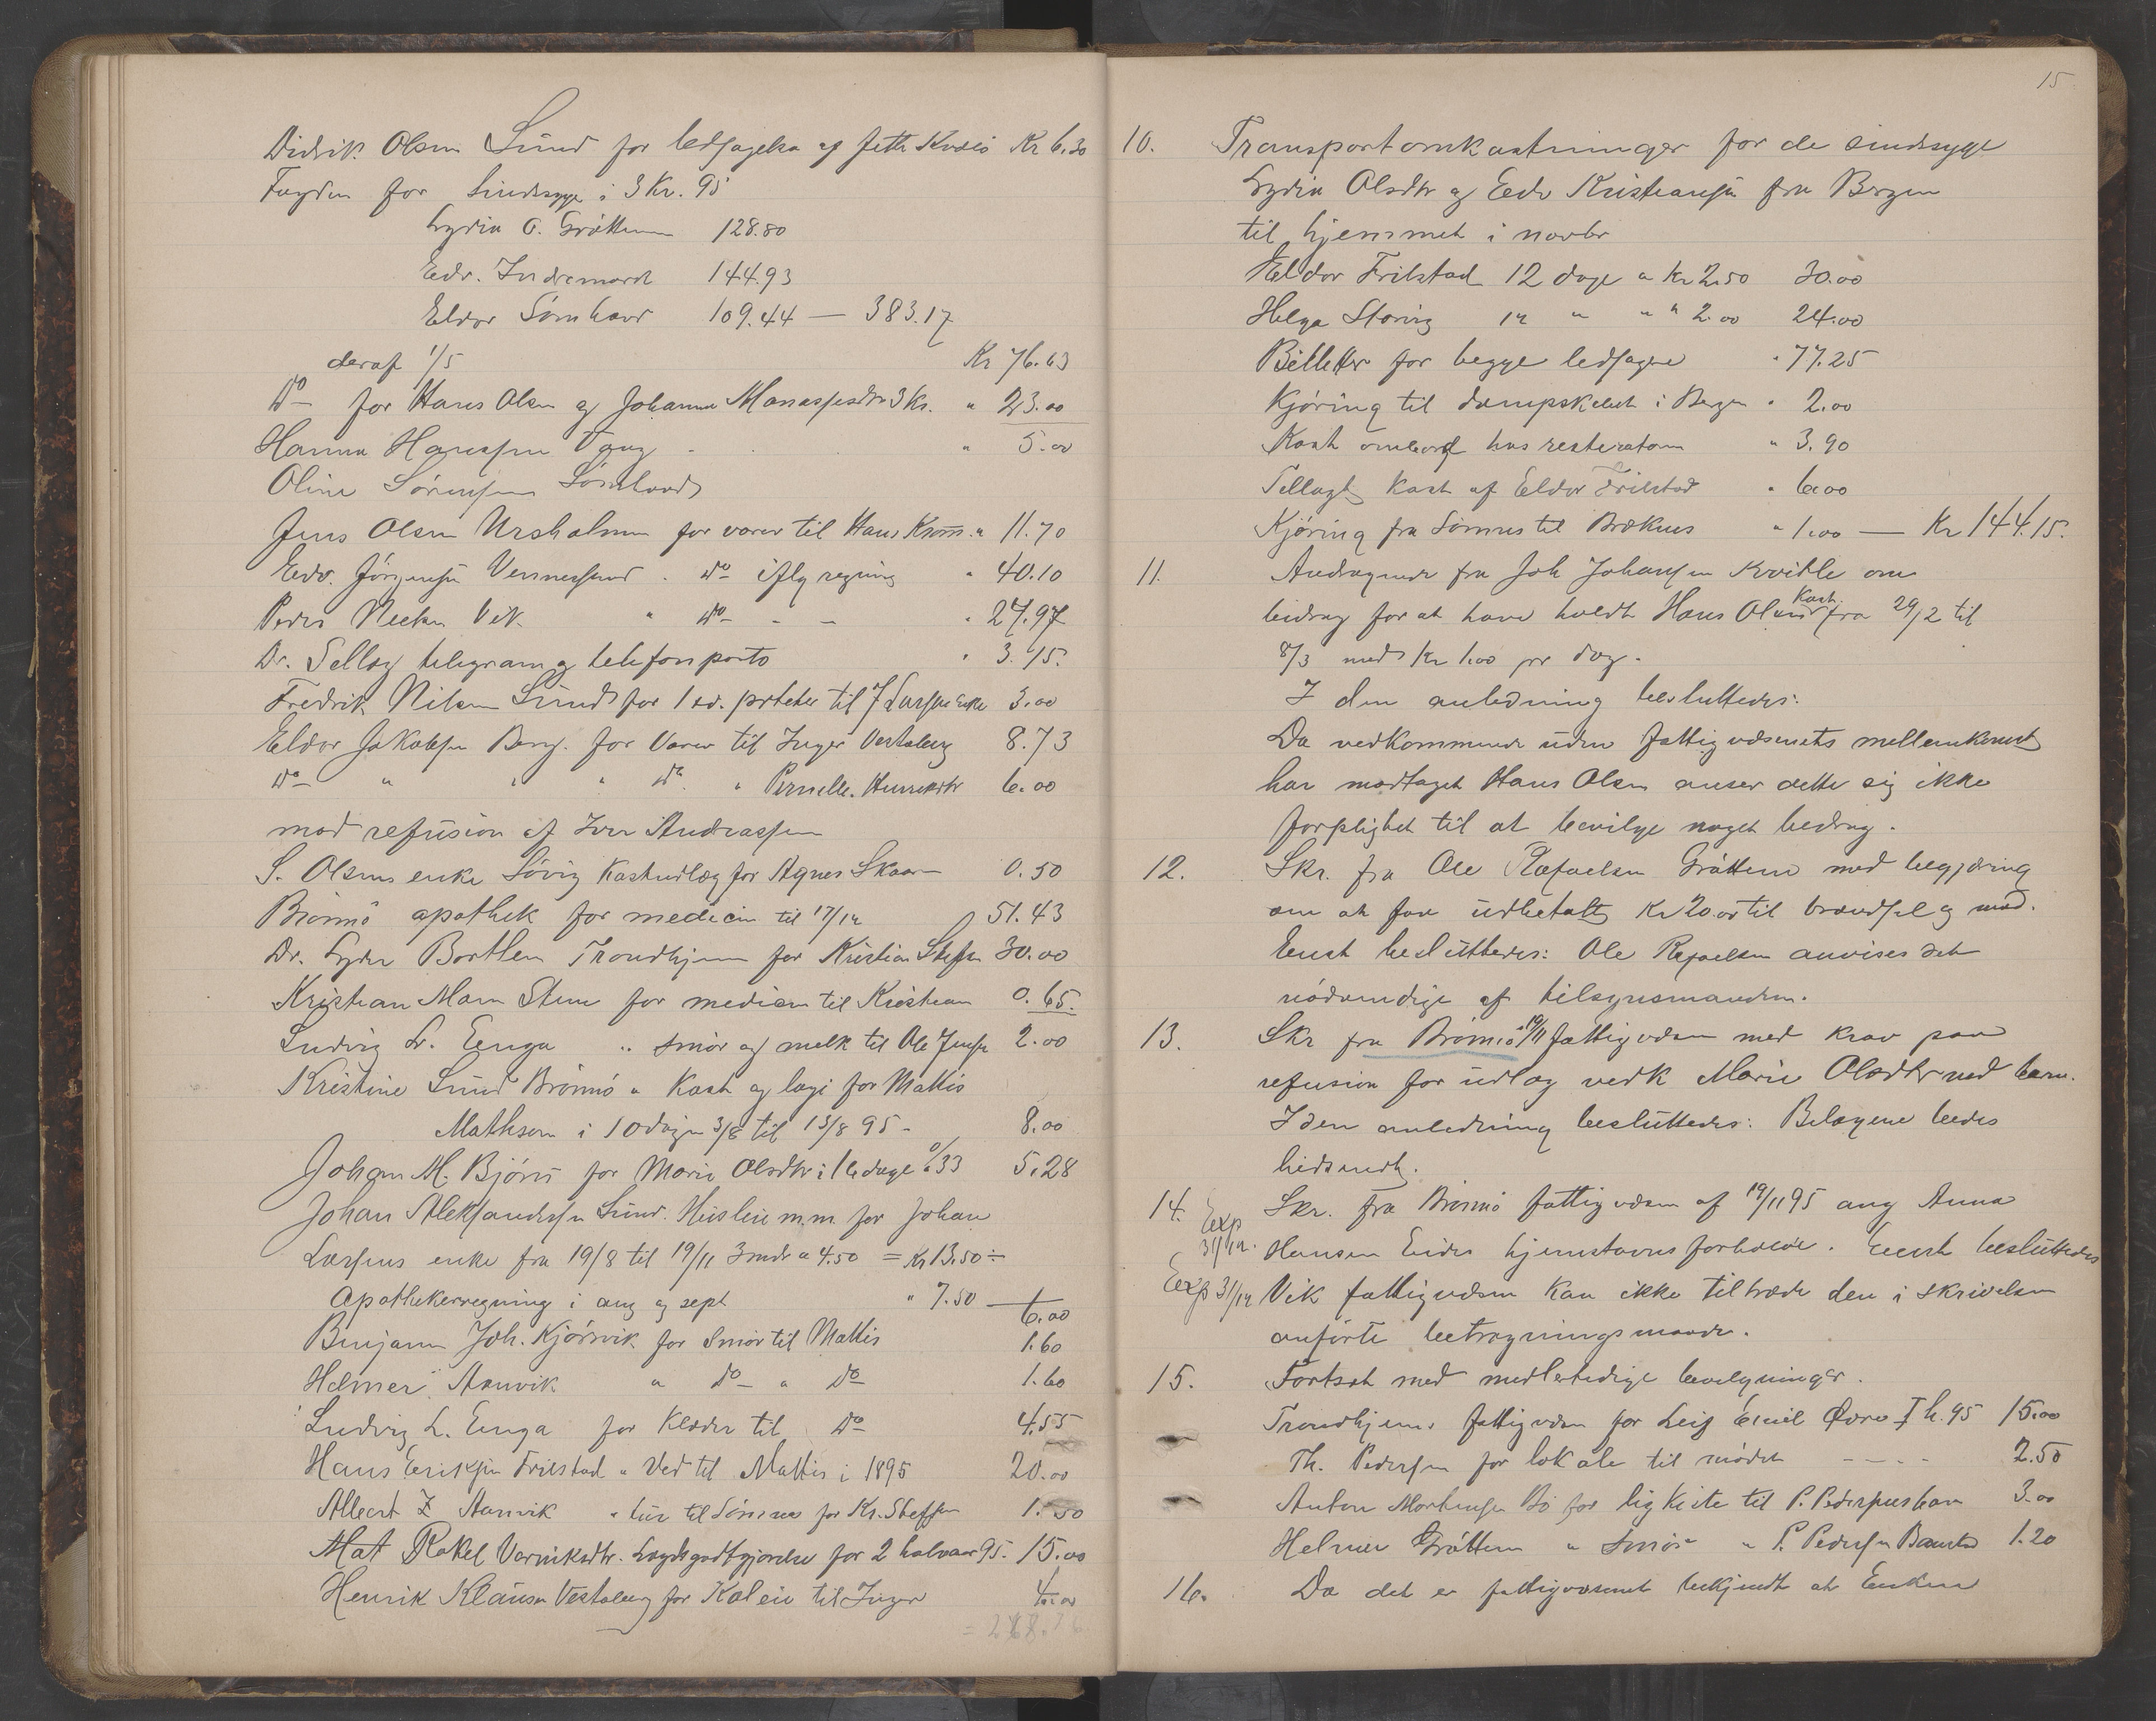 Didrik Olsen Sund for ledsagelse af Kr 6.30
Fogden for Sindssyge i 3 Kv. 95
Lydia O. Gröttem 128.80
Edv. Indremark 144.93
Eldor Sömhovd 109.44 — 383.17
deraf 1/5 Kr 76.63
Do for Hans Olsen og Johanna Manassesdtr 3 Kv. " 23.00
Hanna Hanssen Vang " 5.00
Oline Sörensen
Jens Olsen Ursholmen for varer til Hans Krom. " 11.70
Edv. Jörgensen Vennesund . do iflg regning " 40.10
Peder Vik " do - - " 27.97
Dr. Selbog telegram og telefonporto " 3.15.
Fredrik Nilsen Sund for 1 td. poteter til J Larsens enke 3.00
Eldor Jakobsen Berg. for Varer til Inger Vestaberg 8.73
do " " " do " Pernelle Henriksdtr 6.00
mod refusion af Iver Andreassen
S. Olsens enke Sövig Kostudlæg for Agnes Skaar 0.50
Brönnö apothek for medicin til 17/12 51.43
Dr. Lyder Borthen Trondhjem for Kristian Steffen 30.00
Kristian Mom for medicin til Kristian 0.65.
Ludvig L. Enga " smör og melk til Ole Jensen 2.00
Kristine Sund Brönnö " Kost og logi for Mattis
Mathsen i 10 dage 3/8 til 13/8 95 - 8.00
Johan M. Björn for Marie Olsdtr i 16 dage a 33 5.28
Johan Aleksandersen Sund. Husleie m.m. for Johan
Larsens enke fra 19/8 til 19/11 3 mdr a 4.50 = Kr 13.50 ÷
Apothekerregning i aug og sept " 7.50 — 6.00
Benjamin Joh. Kjörsvik for Smör til Mattis 1.60
Helmer Aanvik " do " do 1.60
Ludvig L. Enga for Klæder til do 4.55
Hans Eriksen Frilstad " Ved til Mattis i 1895 20.00
Albert Z Aanvik " tur til Sömnes for Kr. Steffen 1.50
Mat Rakel Varniksdtr. Lægdsgodtgjörelse for 2 halvaar 95. 15.00
Henrik Klausen Vestaberg for Kalvie til Inger 4.00
15
10. Transportomkostninger for de sindssyge
Lydia Olsdtr og Edv Kristiansen fra Bergen
til hjemmet i novbr
Eldor Frilstad 12 dage a Kr 2.50 30.00
Helga Storvig 12 " " " 2.00 24.00
Billetter for begge ledsagere " 77.25
Kjöring til dampskibet i Bergen " 2.00
Kost ombord hos restauratören " 3.90
Tillagt kost af Eldor Frilstad " 6.00
Kjöring fra Sömnes til Bræknes " 1.00 — Kr 144.15.
11. Andragende fra Joh Johansen Kvitle om
bidrag for at have holdt Hans Olsen Kost fra 29/2 til
8/3 med Kr 1.00 pr dag.
I den anledning besluttedes:
Da vedkommende uden fattigvæsenets mellemkomst
har modtaget Hans Olsen anser dette sig ikke
forpligtet til at bevilge noget bidrag.
12. Skr. fra Ole Rafaelsen Gröttem med begjæring
om at faa udbetalt Kr 20.00 til brændsel og mad.
Enst besluttedes: Ole Rafaelsen anvises det
nödvendige af tilsynsmanden.
13. Skr fra Brönnö 19/11 fattigvæsen med krav paa
refusion for udlæg vedk Marie Olsdtr med barn.
I den anledning besluttedes: Belægene bedes
hidsendt.
14. Skr. fra Brönnö fattigvæsen af 19/11 95 ang Anna
Exp 31/12. Hansen Eides hjemstavnsforholde. Eenst besluttedes
Exp 31/12 Vik fattigvæsen kan ikke tiltræde den i skrivelsen
anförte betragtningsmaade.
15. Fortsat med midlertidige bevilgninger.
Trondhjems fattigvæsen for Leif Emil I h. 95 15.00
Th. Pedersen for lokale til mödet - - - - 2.50
Anton Mortensen Bö for ligkiste til P. Pedersens barn 3.00
Helmer Gröttem " Smör " P. Pedersen 1.20
16. Da det er fattigvæsenet bekjendt at Enken